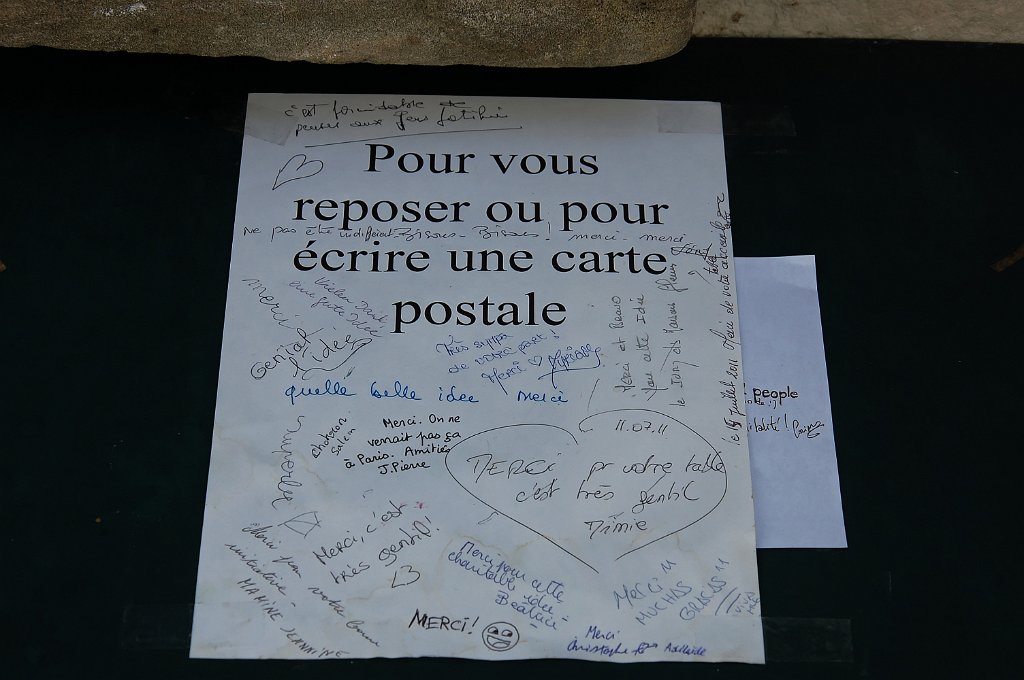 c'est formidable de
penser aux
Pour vous
reposer ou pour
ne pas être indifférent. Bisous. Bisous! merci. merci
écrire une carte
postale
merci
Vielen Dank
Génial
l'idée
Très sympa
de votre part!
Merci ♡ Murielle
Merci et Bravo
pour cette Idée
le Jury des Maisons fleuries
le 15 juillet 2011 Merci de votre
quelle belle idée merci
Merci. On ne
verrait pas ça
à Paris. Amitiés
J.Pierre
11.07.11
MERCI pr votre table
c'est très gentil
Mimie
Merci, c'est
très gentil!
Merci pour votre bonne
initiative -
MAMINE JEANNINE
Merci pour cette
charitable idée
Béatrice
Merci
MUCHAS
GRACIAS
MERCI!
Merci
Christophe Adélaïde
people